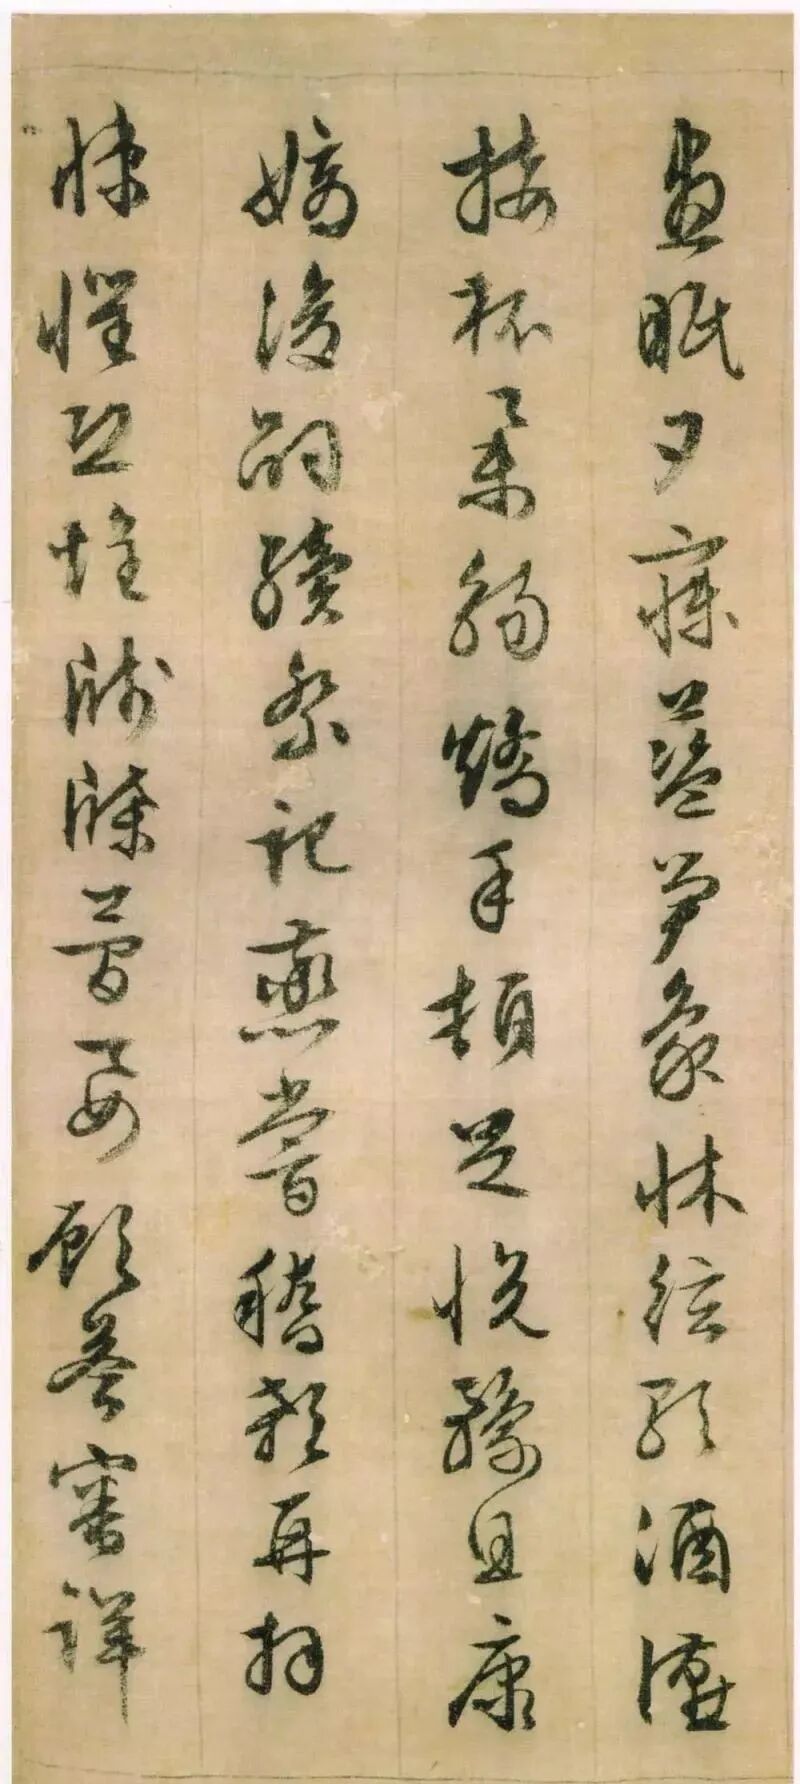 晝眠夕寐藍笋象牀絃歌酒讌
接杯舉觴矯手頓足悅豫且康
嫡後嗣續祭祀蒸嘗稽顙再拜
悚懼恐惶牋牒簡要顧答審詳